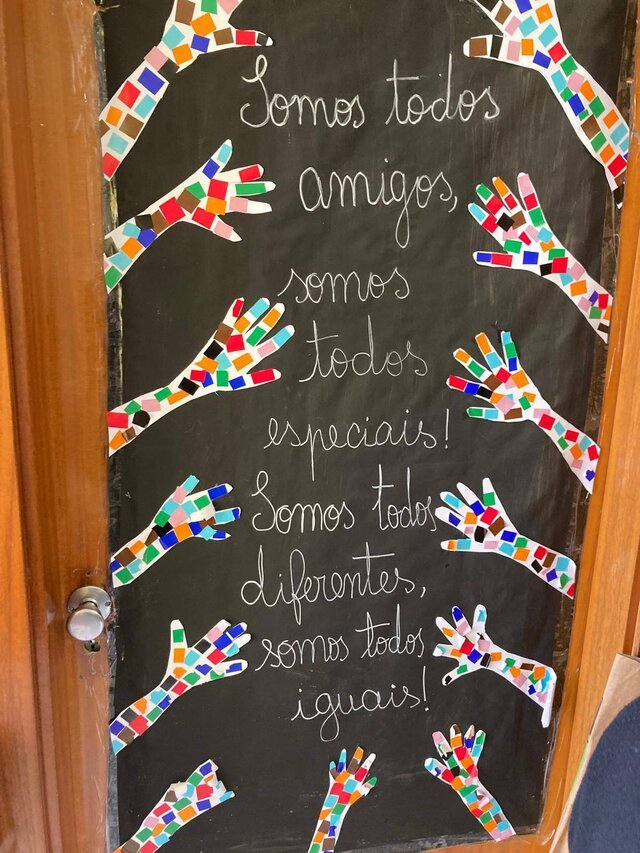 Somos todos
amigos,
somos
todos
especiais!
Somos todos
diferentes,
somos todos
iguais!